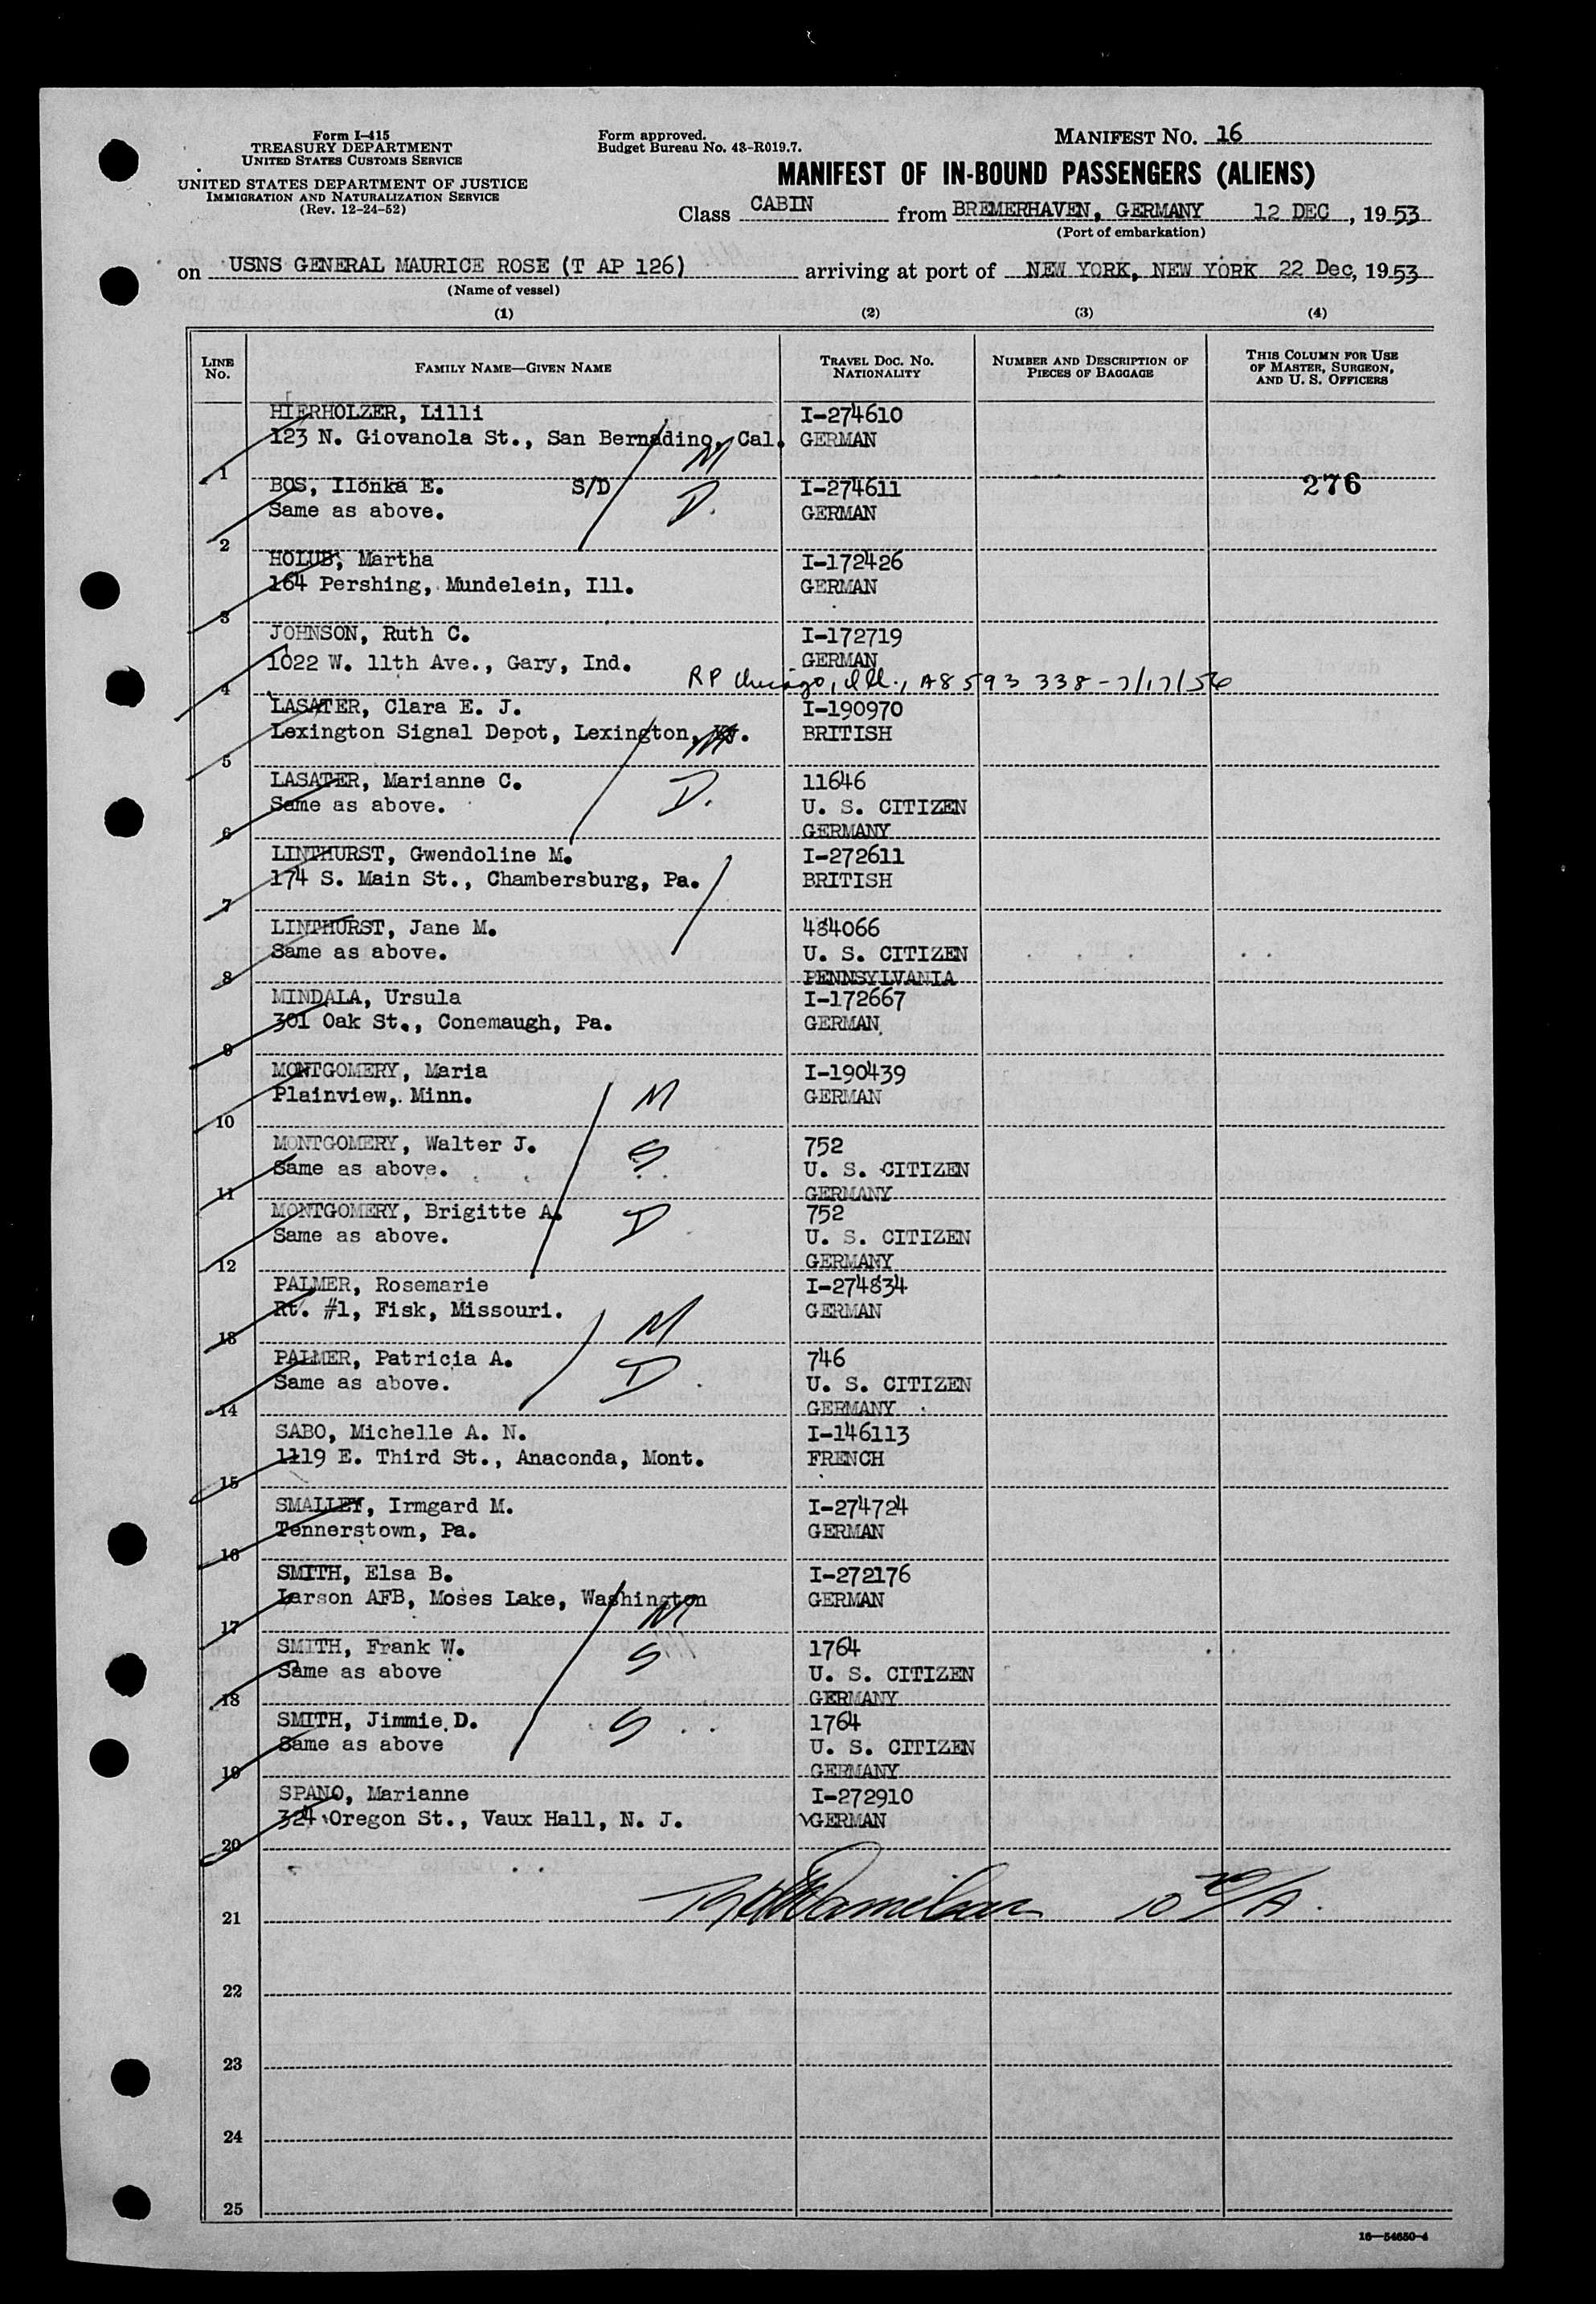 Form I-415
TREASURY DEPARTMENT
UNITED STATES CUSTOMS SERVICE
UNITED STATES DEPARTMENT OF JUSTICE
IMMIGRATION AND NATURALIZATION SERVICE
(Rev. 12-24-52)
Form approved.
Budget Bureau No. 43-R019.7.
MANIFEST NO. 16
MANIFEST OF IN-BOUND PASSENGERS (ALIENS)
Class CABIN from BREMERHAVEN, GERMANY 12 DEC, 1953
(Port of embarkation)
on USNS GENERAL MAURICE ROSE (T AP 126) arriving at port of NEW YORK, NEW YORK 22 Dec, 1953
(Name of vessel)
(1) (2) (3) (4)
LINE NO. FAMILY NAME—GIVEN NAME TRAVEL DOC. NO. NATIONALITY NUMBER AND DESCRIPTION OF PIECES OF BAGGAGE THIS COLUMN FOR USE OF MASTER, SURGEON, AND U. S. OFFICERS
HIERHOLZER, Lilli I-274610
123 N. Giovanola St., San Bernadino, Cal. GERMAN
1 M
BOS, Ilonka E. S/D D. I-274611 276
Same as above. GERMAN
2
HOLUB, Martha I-172426
164 Pershing, Mundelein, Ill. GERMAN
3
JOHNSON, Ruth C. I-172719
1022 W. 11th Ave., Gary, Ind. GERMAN
4 RP Chicago, Ill., A8 593 338 - 7/17/56
LASATER, Clara E. J. I-190970
Lexington Signal Depot, Lexington, Ky. M BRITISH
5
LASATER, Marianne C. D. 11646
Same as above. U. S. CITIZEN
6 GERMANY
LINTHURST, Gwendoline M. I-272611
174 S. Main St., Chambersburg, Pa. BRITISH
7
LINTHURST, Jane M. 484066
Same as above. U. S. CITIZEN
8 PENNSYLVANIA
MINDALA, Ursula I-172667
301 Oak St., Conemaugh, Pa. GERMAN
9
MONTGOMERY, Maria I-190439
Plainview, Minn. M GERMAN
10
MONTGOMERY, Walter J. S 752
Same as above. U. S. CITIZEN
11 GERMANY
MONTGOMERY, Brigitte A. D 752
Same as above. U. S. CITIZEN
12 GERMANY
PALMER, Rosemarie I-274834
Rt. #1, Fisk, Missouri. M GERMAN
13
PALMER, Patricia A. D 746
Same as above. U. S. CITIZEN
14 GERMANY
SABO, Michelle A. N. I-146113
1119 E. Third St., Anaconda, Mont. FRENCH
15
SMALLEY, Irmgard M. I-274724
Tennerstown, Pa. GERMAN
16
SMITH, Elsa B. I-272176
Larson AFB, Moses Lake, Washington GERMAN
17 M
SMITH, Frank W. S 1764
Same as above U. S. CITIZEN
18 GERMANY
SMITH, Jimmie D. S 1764
Same as above U. S. CITIZEN
19 GERMANY
SPANO, Marianne I-272910
324 Oregon St., Vaux Hall, N. J. GERMAN
20
21
22
23
24
25
16—54650-4